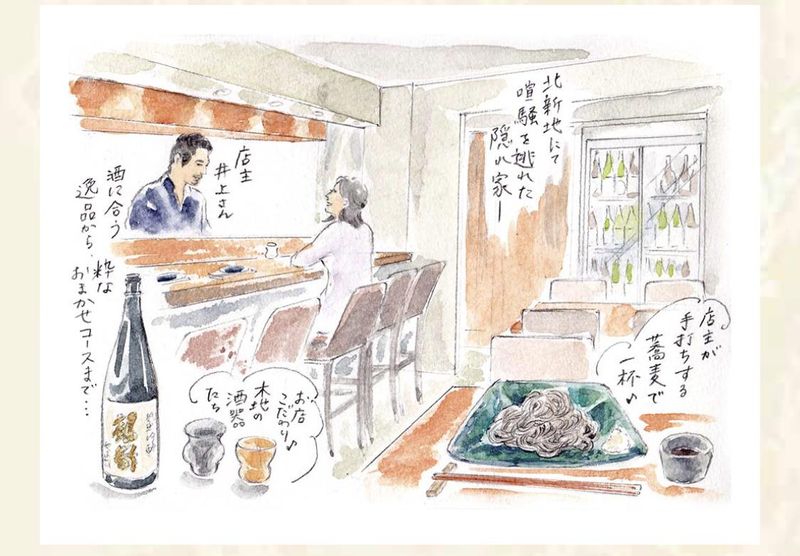 北新地にて
喧騒を逃れた
隠れ家ー
店主
井上さん
酒に合う
逸品から、
粋な
おまかせコースまで…
店主が
手打ちする
蕎麦で
一杯♪
お店
こだわり♪
木地の
酒器
たち
鶴齢